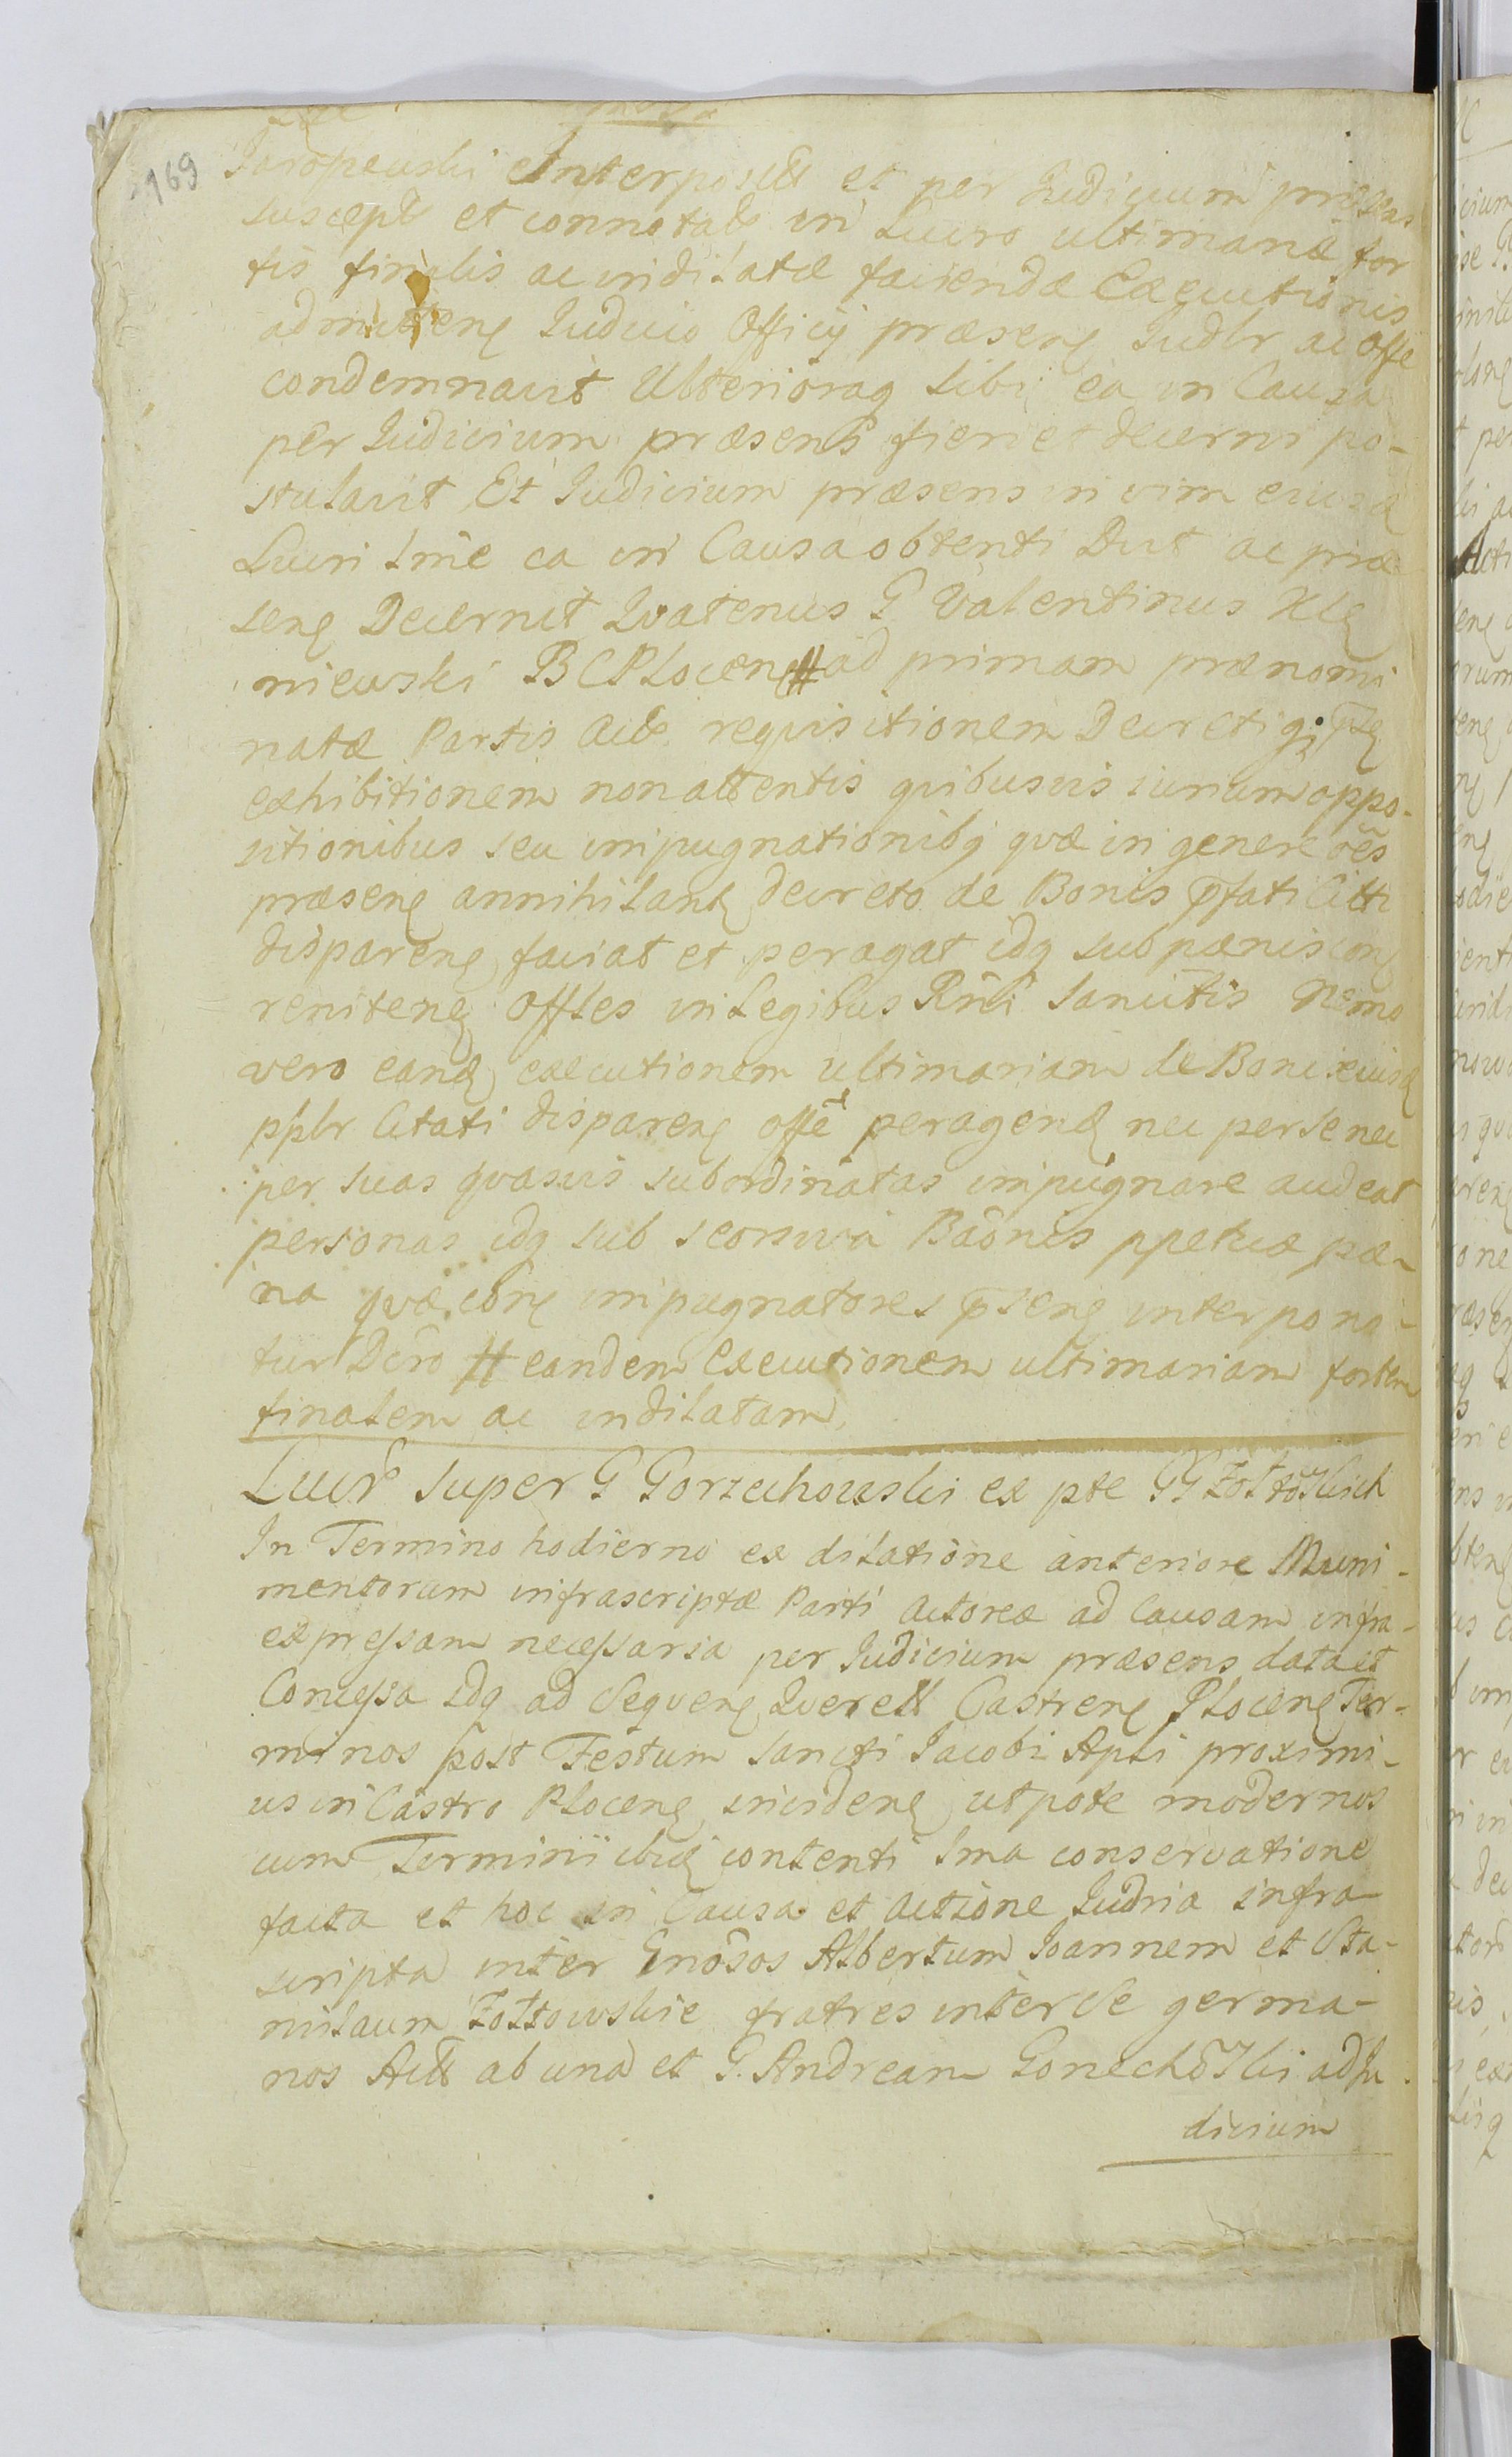 169
Jaropewski Interposita et per Judicium præsens
suscept et connotat in Lucro ultimariæ for
tis finalis ac indilatæ faciendæ Executionis
admitten Judicio Officij præsen Judlr ac Offe
condemnavit Ulterioraq sibi ea in Causa
per Judicium præsens fieri et decerni po-
stulavit Et Judicium præsens in vim eiusd
Lucri sine ea in Causa obtenti Dat ac præ
sen Decernit Qvatenus G Valentinus Kle
niewski BCPlocen # ad primam prænomi
natæ Partis Act requisitionem Decretiq
exhibitionem non attentis qvibusvis iurium oppo-
sitionibus seu impugnationibq qvæ in genere oes
præsen annihilant decreto de Bonis pfati Citti
disparen faciat et peragat idq sub pænis con
reniten Offles in Legibus Rni sancitis Nemo
vero eand executionem ultimariam de Bonis eiusd
pplr Citati disparen offe peragend nec per se nec
per suas qvasvis subordinatas impugnare audeat
personas idq sub seorsiva Baonis ppetuæ pæ-
na qvæ contr impugnatores psens interpona-
tur Dcro # eandem Executionem ultimariam fortem
finalem ac indilatam
Lucr Super G Gorzechowski ex pte GG Zołtowskich
In Termino hodierno ex dilatione anteriore Muni-
mentorum infrascriptæ Parti Actoreæ ad Causam infra-
expressam necessaria per Judicium præsens data et
Concessa Idq ad Seqven Qverell Castren Plocen Ter-
minos post Festum Sancti Jacobi Apli proximi-
us in Castro Plocen inciden utpote modernos
cum Terminii ibid contenti sma conservatione
facta et hoc in Causa et actione Judria infra
scripta inter Gnosos Albertum Joannem et Sta-
nislaum Zołtowskie fratres inter Se germa-
nos Act ab una et G. Andream Gorzechowski ad Ju-
dicium